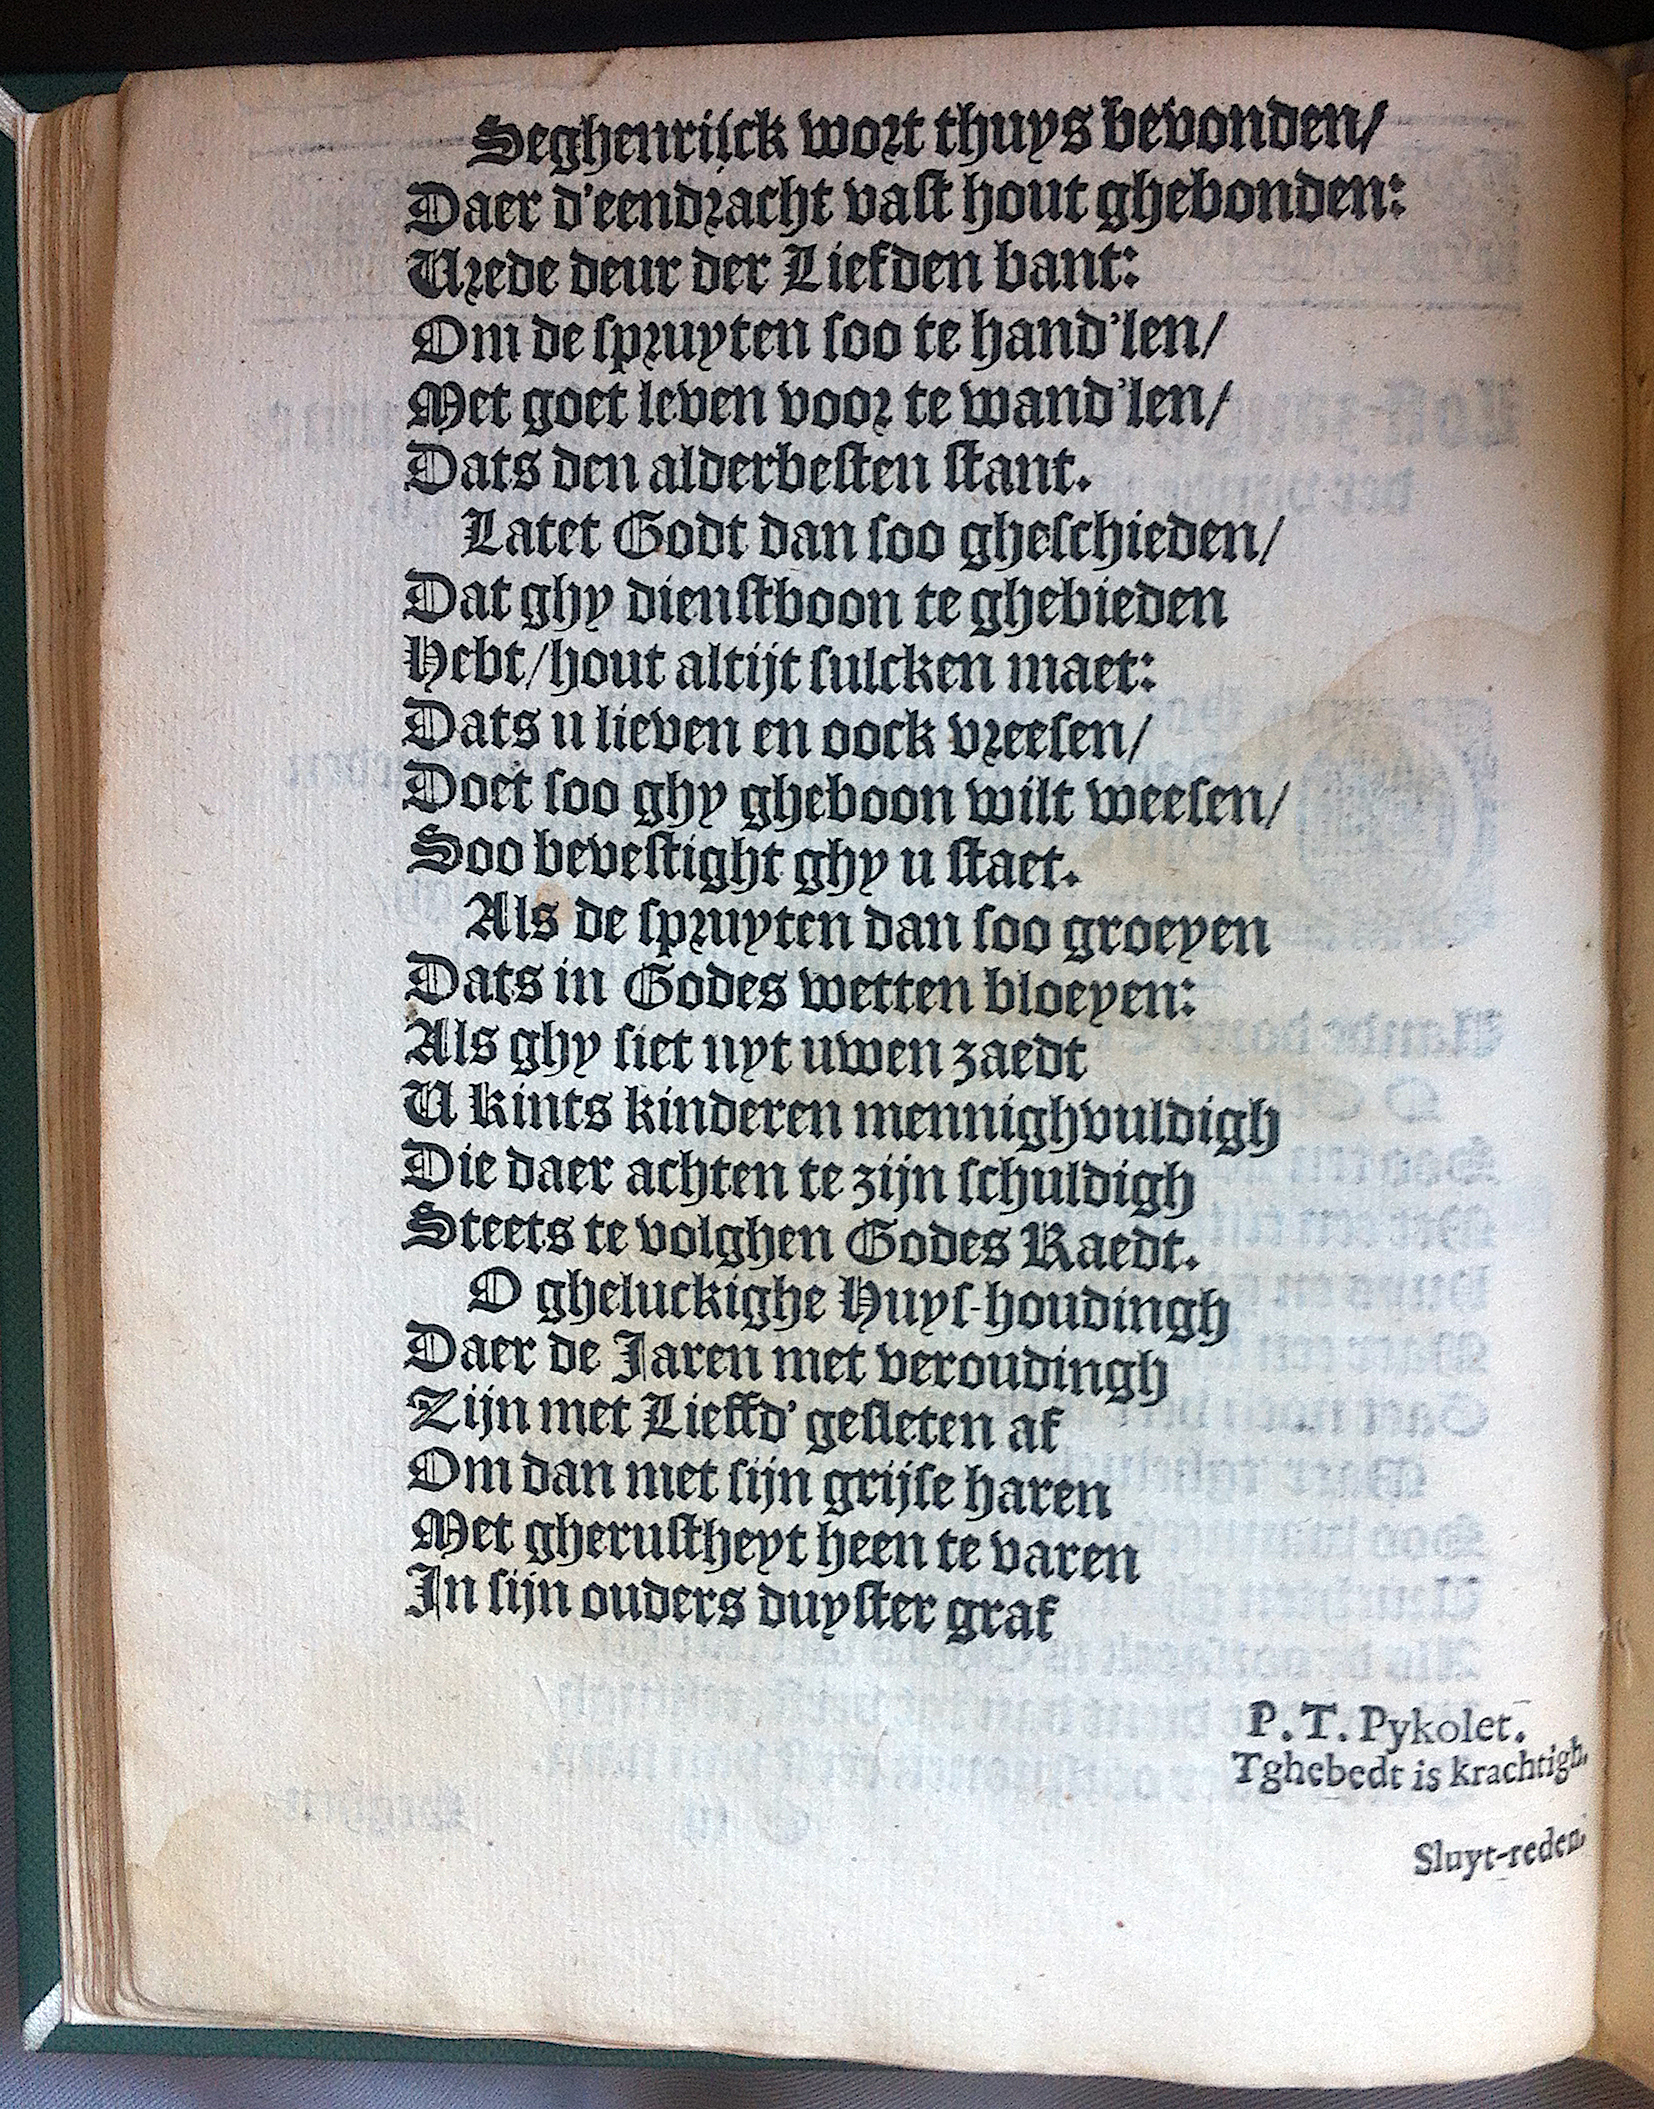 Seghenrijck wort thuys bevonden/
Daer d'eendracht vast hout ghebonden:
Vrede deur der Liefden bant:
Om de spruyten soo te hand'len/
Met goet leven voor te wand'len/
Dats den alderbesten stant.
Latet Godt dan soo gheschieden/
Dat ghy dienstboon te ghebieden
Hebt/hout altijt sulcken maet:
Dats u lieven en oock vreesen/
Doet soo ghy gheboon wilt weesen/
Soo bevestight ghy u staet.
Als de spruyten dan soo groeyen
Dats in Godes wetten bloeyen:
Als ghy siet uyt uwen zaedt
U kints kinderen mennighvuldigh
Die daer achten te zijn schuldigh
Steets te volghen Godes Raedt.
O gheluckighe Huys-houdingh
Daer de Jaren met veroudingh
Zijn met Lieffd' gesleten af
Om dan met sijn grijse haren
Met gherustheyt heen te varen
In sijn ouders duyster graf
P. T. Pykolet.
Tghebedt is krachtigh.
Sluyt-reden.